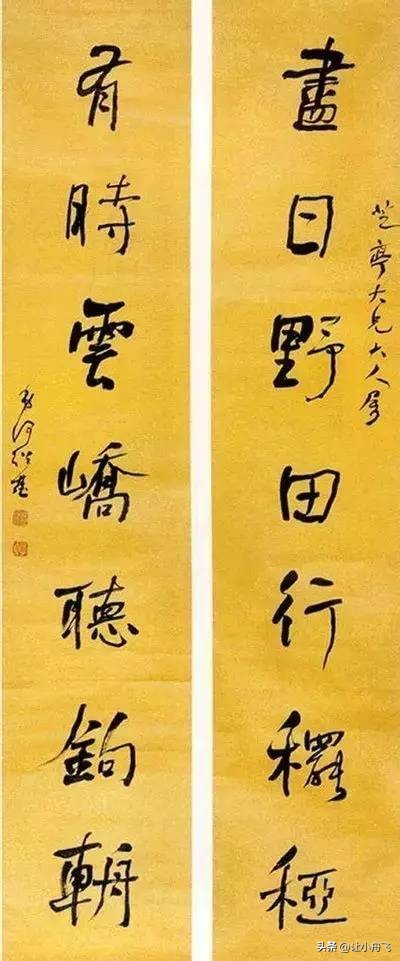 芝亭大兄大人屬
盡日野田行穲稏
有時雲嶠聽鉤輈
何紹基
头条 @让小舟飞